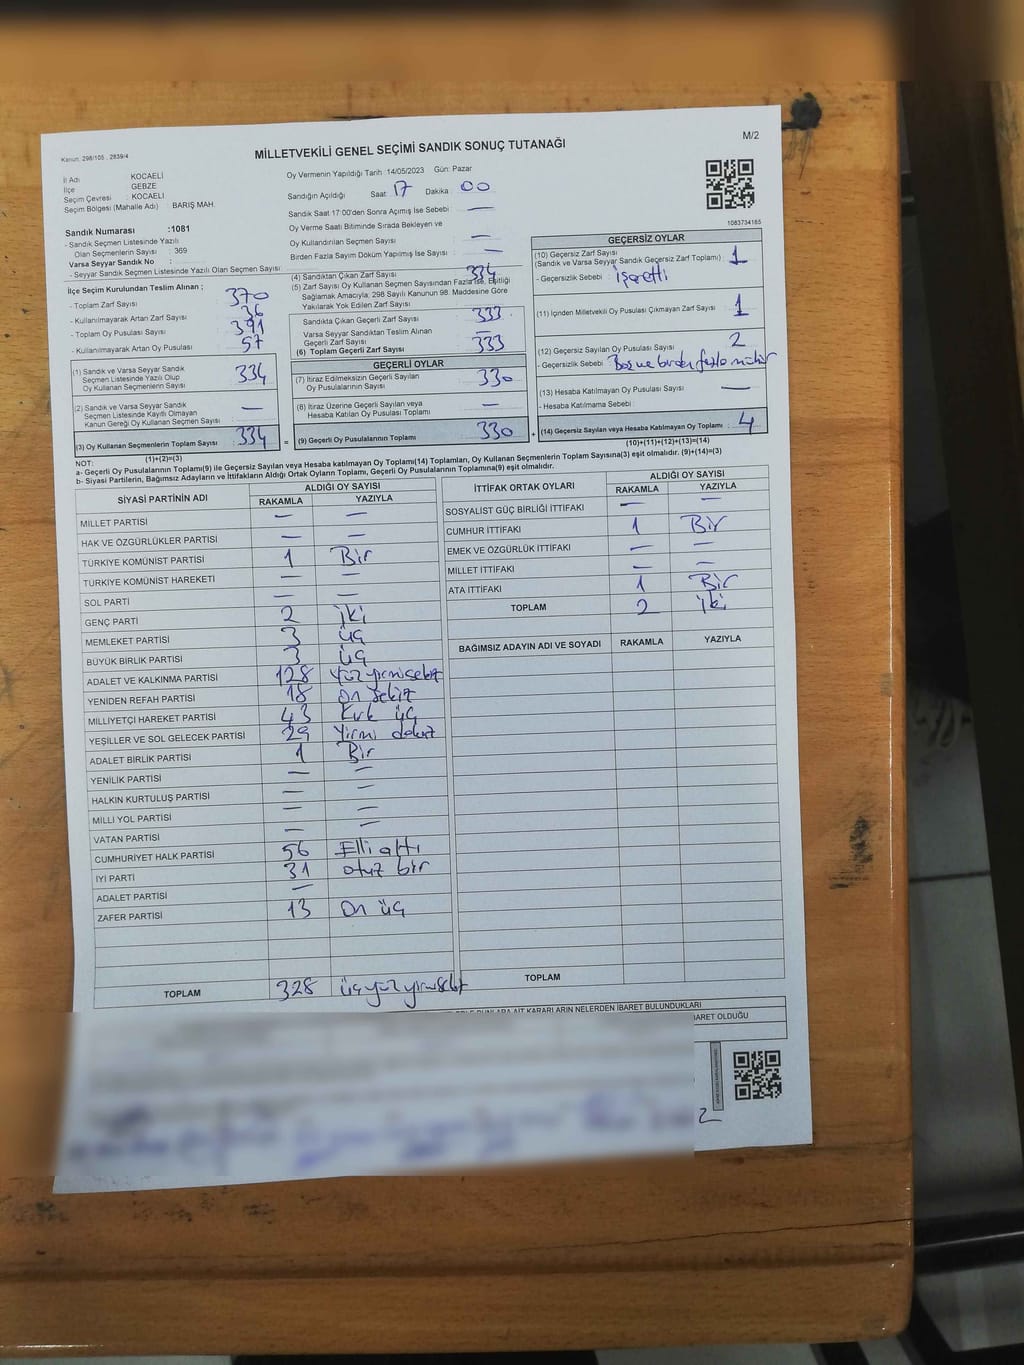 Kanun. 298/105 , 2839/4
M/2
MİLLETVEKİLİ GENEL SEÇİMİ SANDIK SONUÇ TUTANAĞI
İl Adı : KOCAELİ
İlçe : GEBZE
Seçim Çevresi : KOCAELİ
Seçim Bölgesi (Mahalle Adı) : BARIŞ MAH.
Sandık Numarası :1081
- Sandık Seçmen Listesinde Yazılı
Olan Seçmenlerin Sayısı : 369
Varsa Seyyar Sandık No :
- Seyyar Sandık Seçmen Listesinde Yazılı Olan Seçmen Sayısı
Oy Vermenin Yapıldığı Tarih :14/05/2023 Gün: Pazar
Sandığın Açıldığı Saat: 17 Dakika : 00
Sandık Saat 17:00'den Sonra Açımış İse Sebebi : —
Oy Verme Saati Bitiminde Sırada Bekleyen ve
Oy Kullandırılan Seçmen Sayısı : —
Birden Fazla Sayım Döküm Yapılmış İse Sayısı : —
1083734185
İlçe Seçim Kurulundan Teslim Alınan ;
- Toplam Zarf Sayısı : 370
- Kullanılmayarak Artan Zarf Sayısı : 36
- Toplam Oy Pusulası Sayısı : 391
- Kullanılmayarak Artan Oy Pusulası : 57
(1) Sandık ve Varsa Seyyar Sandık
Seçmen Listesinde Yazılı Olup
Oy Kullanan Seçmenlerin Sayısı : 334
(2) Sandık ve Varsa Seyyar Sandık
Seçmen Listesinde Kayıtlı Olmayan
Kanun Gereği Oy Kullanan Seçmen Sayısı : —
(3) Oy Kullanan Seçmenlerin Toplam Sayısı : 334
(1)+(2)=(3)
(4) Sandıktan Çıkan Zarf Sayısı : 334
(5) Zarf Sayısı Oy Kullanan Seçmen Sayısından Fazla ise, Eşitliği
Sağlamak Amacıyla; 298 Sayılı Kanunun 98. Maddesine Göre
Yakılarak Yok Edilen Zarf Sayısı :
Sandıkta Çıkan Geçerli Zarf Sayısı : 333
Varsa Seyyar Sandıktan Teslim Alınan
Geçerli Zarf Sayısı : —
(6) Toplam Geçerli Zarf Sayısı : 333
GEÇERLİ OYLAR
(7) İtiraz Edilmeksizin Geçerli Sayılan
Oy Pusulalarının Sayısı : 330
(8) İtiraz Üzerine Geçerli Sayılan veya
Hesaba Katılan Oy Pusulası Toplamı : —
= (9) Geçerli Oy Pusulalarının Toplamı : 330 +
GEÇERSİZ OYLAR
(10) Geçersiz Zarf Sayısı
(Sandık ve Varsa Seyyar Sandık Geçersiz Zarf Toplamı) : 1
- Geçersizlik Sebebi : İşaretli
(11) İçinden Milletvekili Oy Pusulası Çıkmayan Zarf Sayısı : 1
(12) Geçersiz Sayılan Oy Pusulası Sayısı : 2
- Geçersizlik Sebebi : Boş ve birden fazla mühür
(13) Hesaba Katılmayan Oy Pusulası Sayısı : —
- Hesaba Katılmama Sebebi :
(14) Geçersiz Sayılan veya Hesaba Katılmayan Oy Toplamı : 4
(10)+(11)+(12)+(13)=(14)
NOT:
a- Geçerli Oy Pusulalarının Toplamı(9) ile Geçersiz Sayılan veya Hesaba katılmayan Oy Toplamı(14) Toplamları, Oy Kullanan Seçmenlerin Toplam Sayısına(3) eşit olmalıdır. (9)+(14)=(3)
b- Siyasi Partilerin, Bağımsız Adayların ve İttifakların Aldığı Ortak Oyların Toplamı, Geçerli Oy Pusulalarının Toplamına(9) eşit olmalıdır.
SİYASİ PARTİNİN ADI ALDIĞI OY SAYISI
RAKAMLA YAZIYLA
MİLLET PARTİSİ — —
HAK VE ÖZGÜRLÜKLER PARTİSİ — —
TÜRKİYE KOMÜNİST PARTİSİ 1 Bir
TÜRKİYE KOMÜNİST HAREKETİ — —
SOL PARTİ — —
GENÇ PARTİ 2 iki
MEMLEKET PARTİSİ 3 üç
BÜYÜK BİRLİK PARTİSİ 3 üç
ADALET VE KALKINMA PARTİSİ 128 Yüz yirmi sekiz
YENİDEN REFAH PARTİSİ 18 On sekiz
MİLLİYETÇİ HAREKET PARTİSİ 43 Kırk üç
YEŞİLLER VE SOL GELECEK PARTİSİ 29 Yirmi dokuz
ADALET BİRLİK PARTİSİ 1 Bir
YENİLİK PARTİSİ — —
HALKIN KURTULUŞ PARTİSİ — —
MİLLİ YOL PARTİSİ — —
VATAN PARTİSİ — —
CUMHURİYET HALK PARTİSİ 56 Elli altı
İYİ PARTİ 31 otuz bir
ADALET PARTİSİ —
ZAFER PARTİSİ 13 On üç
TOPLAM 328 üçyüz yirmi sekiz
İTTİFAK ORTAK OYLARI ALDIĞI OY SAYISI
RAKAMLA YAZIYLA
SOSYALİST GÜÇ BİRLİĞİ İTTİFAKI — —
CUMHUR İTTİFAKI 1 Bir
EMEK VE ÖZGÜRLÜK İTTİFAKI — —
MİLLET İTTİFAKI — —
ATA İTTİFAKI 1 Bir
TOPLAM 2 iki
BAĞIMSIZ ADAYIN ADI VE SOYADI RAKAMLA YAZIYLA
TOPLAM
AİT KARARLARIN NELERDEN İBARET BULUNDUKLARI
OLDUĞU
2